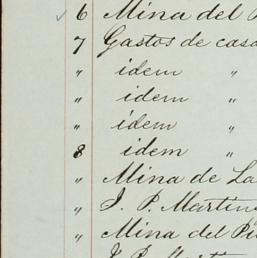 6 Mina del
7 Gastos de casa
" idem "
" idem "
" idem "
8 idem "
" Mina de La
" J. P. Martin
" Mina del
" J. P.